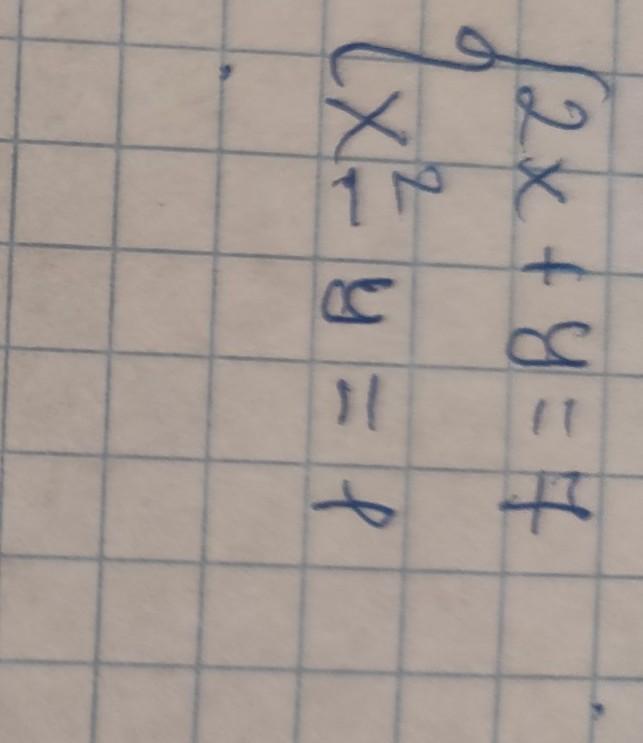 2x + y = 7
x² - y = 1